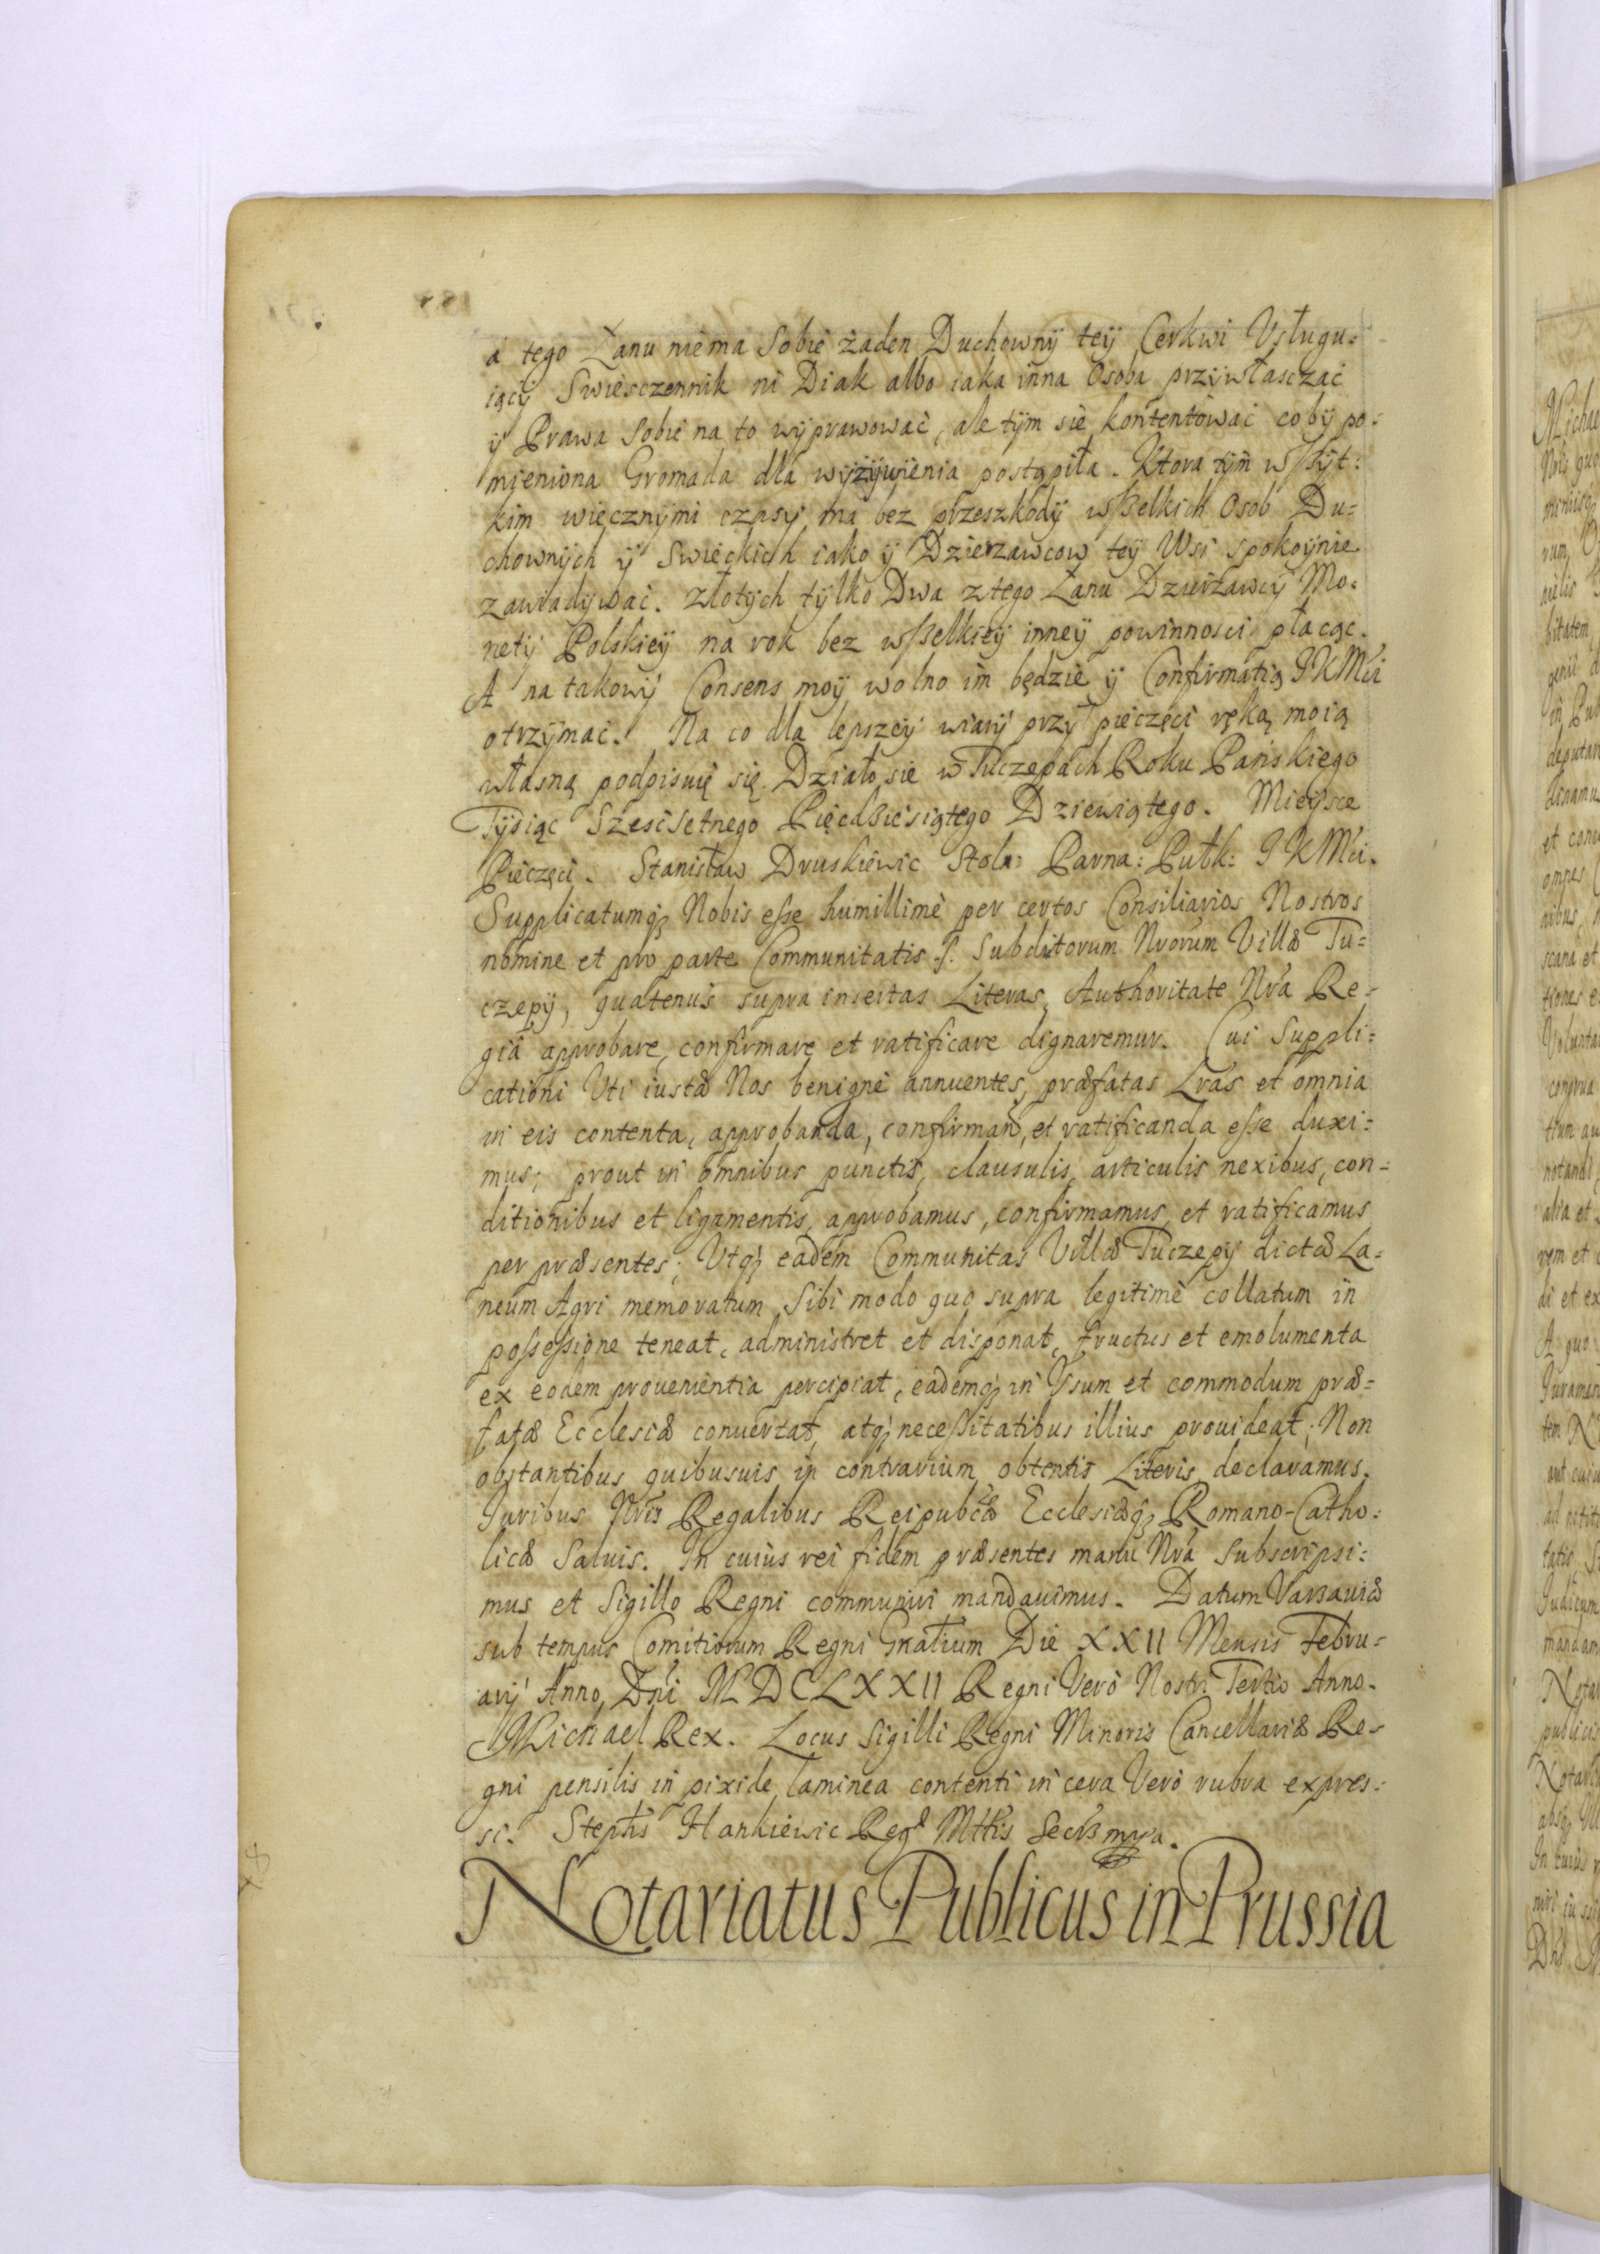 á tego Łanu niema Sobie żaden Duchowny tey Cerkwi Vsługu=
iący Swiesczennik ni Diak albo iaka inna Osoba przywłasczać
y Prawa Sobie na to wyprawować, ale tym się kontentować coby po=
mieniona Gromada dla wyżywienia postąpiła. Ktora tym wszyt:
kim wiecznymi czasy ma bez przeszkody wszelkich Osob Du=
chownych y Swieckich iako y Dzierzawcow tey Wsi spokoynie
zawiadywać. złotych tylko Dwa z tego Łanu Dzierżawcy Mo=
nety Polskiey na rok bez wszelkiey inney powinnosci płacąc.
A na takowy Consens moy wolno im będzie y Confirmatią IKMci
otrzymać. Na co dla lepszey wiary przy pieczęci ręką moią
własną podpisuię się. Działo się w Tuczepach Roku Pańskiego
Tysiąc Szescsetnego Pięcdziesiątego Dziewiątego. Mieysce
Pieczęci. Stanisław Druskiewic Stoln: Parna: Pułk: IKMci.
Supplicatumq; Nobis esse humillimè per certos Consiliarios Nostros
nomine et pro parte Communitatis .s. Subditorum Nrorum Villæ Tu=
czepy, quatenus supra insertas Literas, Authoritate Nrâ Re=
giâ approbare, confirmare et ratificare dignaremur. Cui Suppli=
cationi Vti iustæ Nos benignè annuentes, præfatas Lras et omnia
in eis contenta, approbanda, confirman, et ratificanda esse duxi=
mus; prout in omnibus punctis, clausulis, articulis nexibus, con=
ditionibus et ligamentis, approbamus, confirmamus, et ratificamus
per præsentes; Vtq; eadem Communitas Villæ Tuczepy dictæ La=
neum Agri memoratum Sibi modo quo supra legitimè collatum in
possessione teneat, administret et disponat, fructus et emolumenta
ex eodem prouenientia percipiat, eademq; in Vsum et commodum præ=
fatæ Ecclesiæ conuertat, atq; necessitatibus illius prouideat; Non
obstantibus quibusuis in contrarium obtentis Literis declaramus.
Iuribus Nris Regalibus Reipubcæ Ecclesiæq; Romano-Catho=
licæ Saluis. In cuius rei fidem præsentes manu Nrâ Subscripsi=
mus et Sigillo Regni communiri mandauimus. Datum Varsauiæ
sub tempus Comitiorum Regni Gnalium Die XXII Mensis Febru=
arij Anno Dni MDCLXXII Regni Verò Nostri Tertio Anno.
Michael Rex. Locus Sigilli Regni Minoris Cancellariæ Re=
gni pensilis in pixide laminea contenti in cera Verò rubra expres=
si. Stephs Hankiewic Regæ Mttis Secrs mpa.
Notariatus Publicus in Prussia